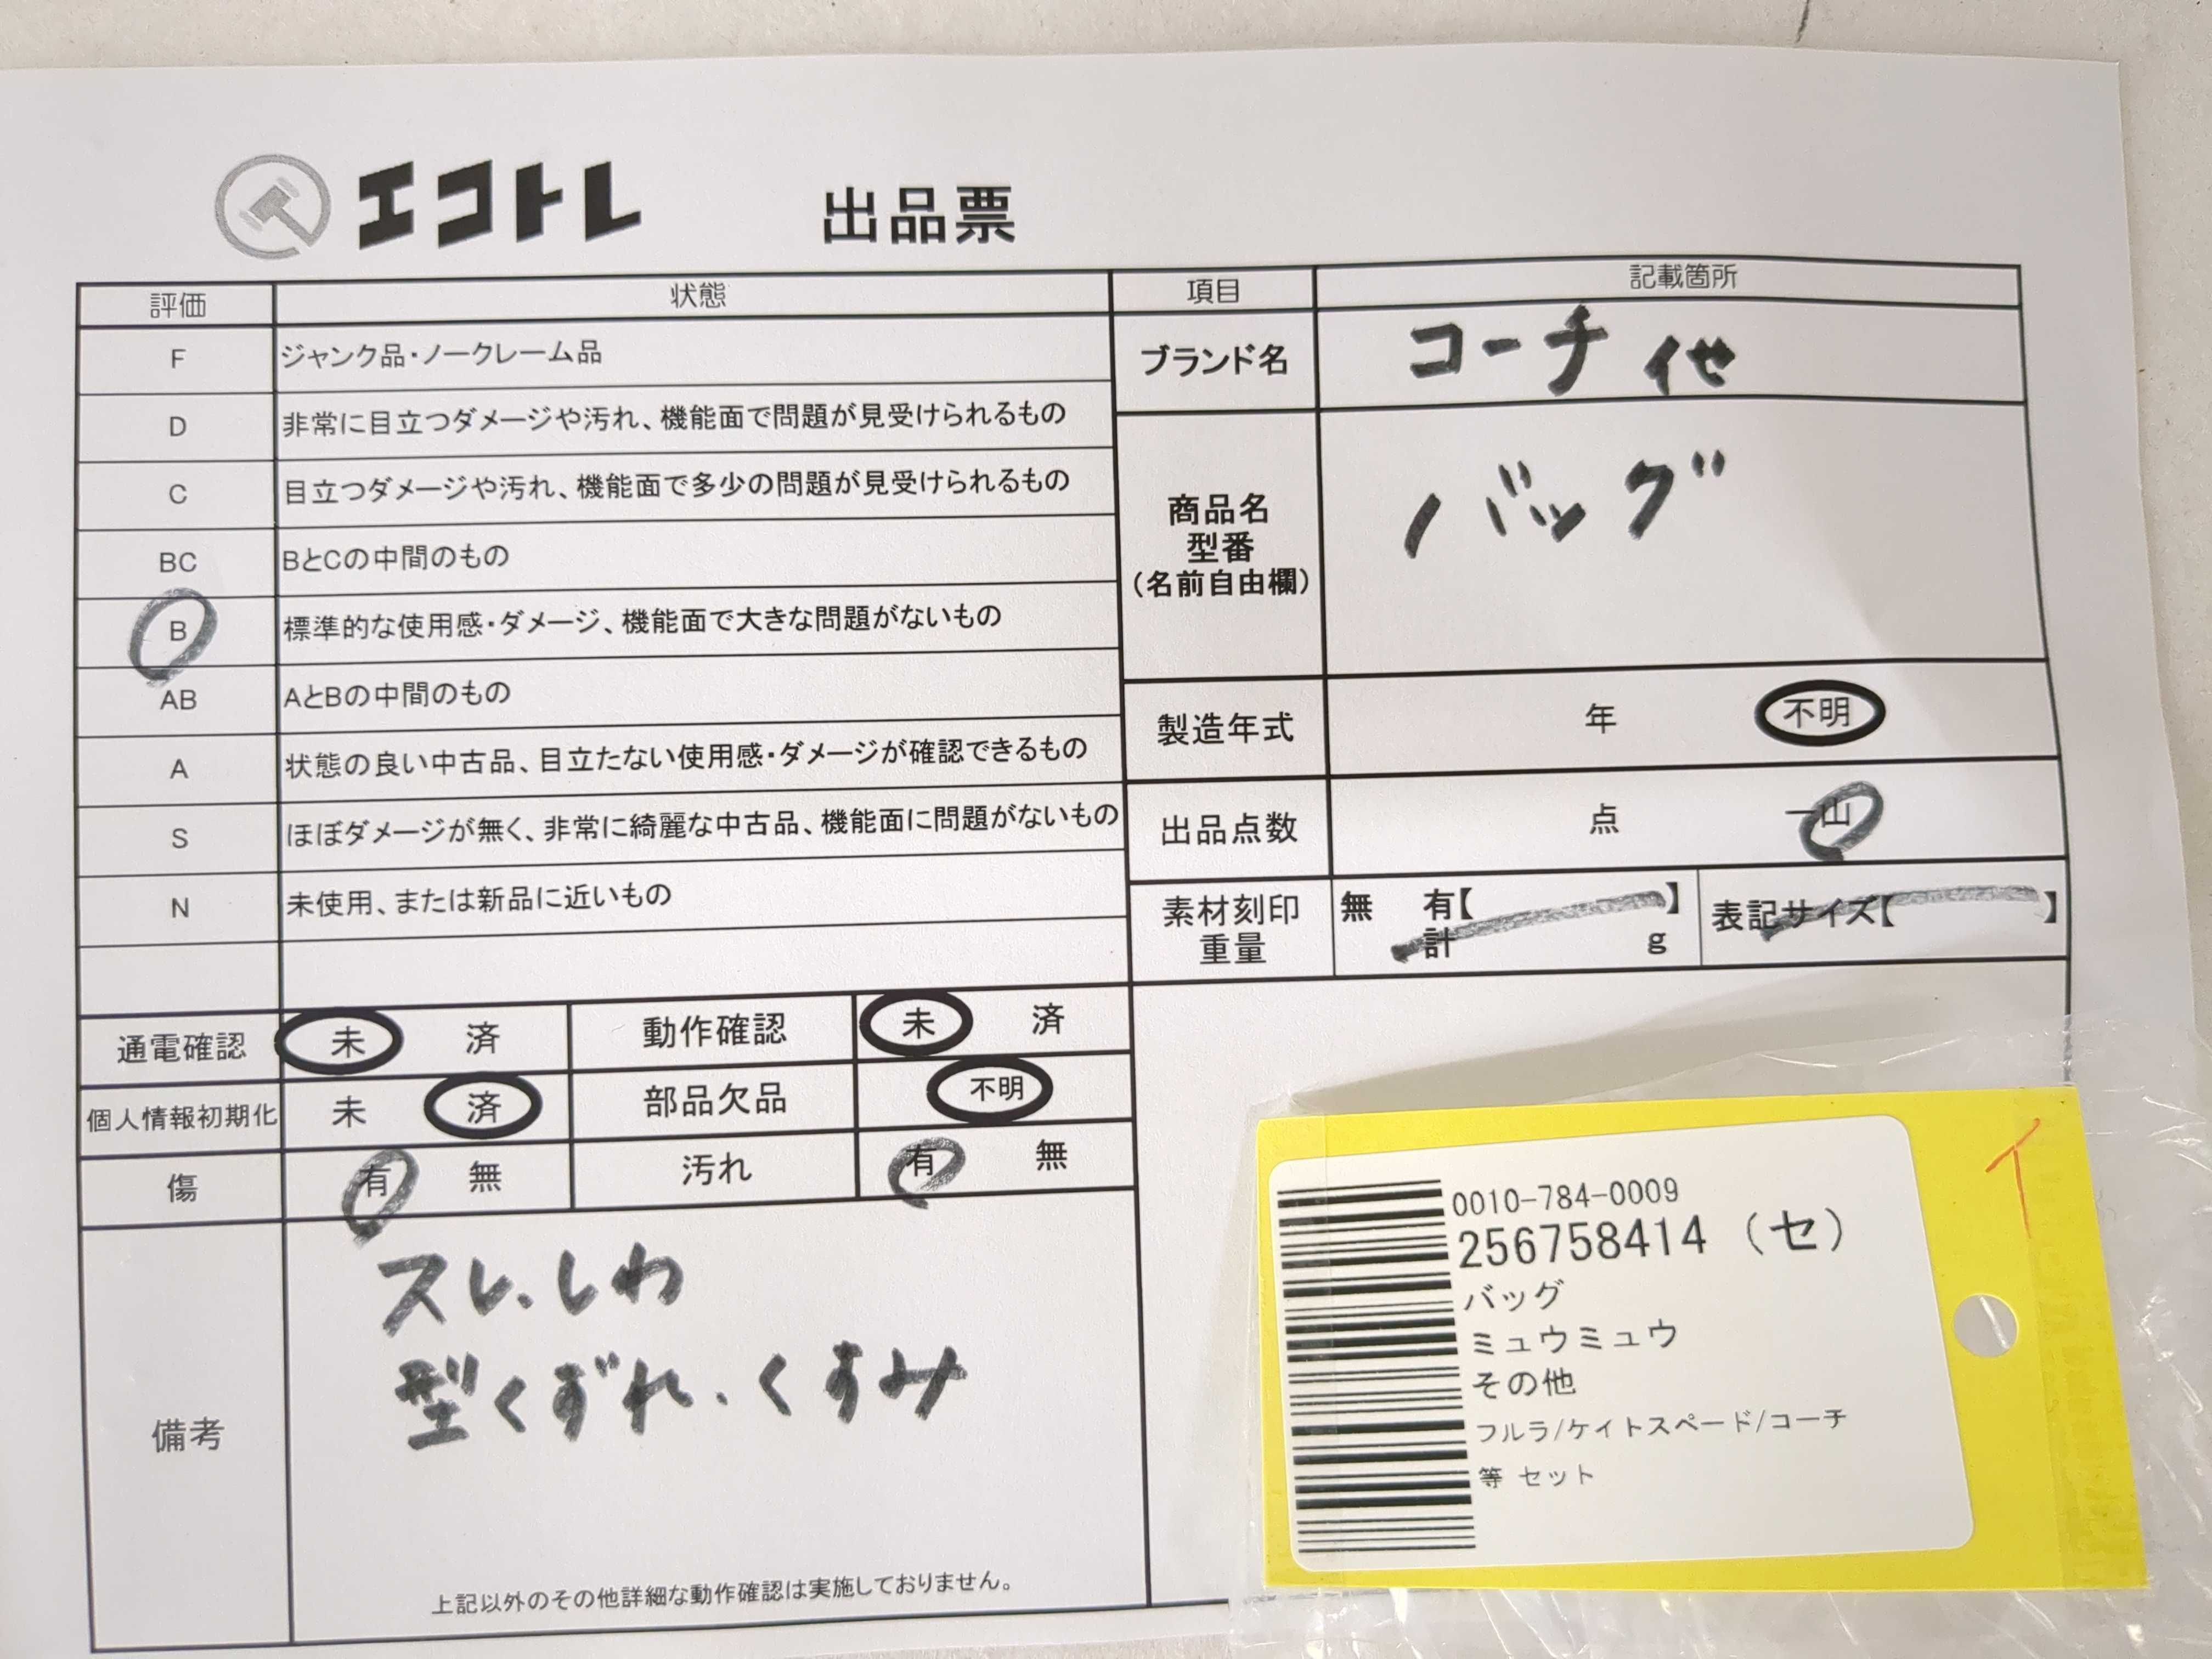 エコトレ 出品票
評価 状態
F ジャンク品・ノークレーム品
D 非常に目立つダメージや汚れ、機能面で問題が見受けられるもの
C 目立つダメージや汚れ、機能面で多少の問題が見受けられるもの
BC BとCの中間のもの
B 標準的な使用感・ダメージ、機能面で大きな問題がないもの
AB AとBの中間のもの
A 状態の良い中古品、目立たない使用感・ダメージが確認できるもの
S ほぼダメージが無く、非常に綺麗な中古品、機能面に問題がないもの
N 未使用、または新品に近いもの
項目 記載箇所
ブランド名 コーチ 他
商品名
型番
(名前自由欄)
バッグ
製造年式 年 不明
出品点数 点 一山
素材刻印
重量
無 有【 】
計 g
表記サイズ【 】
通電確認 未 済 動作確認 未 済
個人情報初期化 未 済 部品欠品 不明
傷 有 無 汚れ 有 無
備考
スレ、しわ
型くずれ、くすみ
上記以外のその他詳細な動作確認は実施しておりません。
イ
0010-784-0009
256758414 (セ)
バッグ
ミュウミュウ
その他
フルラ/ケイトスペード/コーチ
等 セット